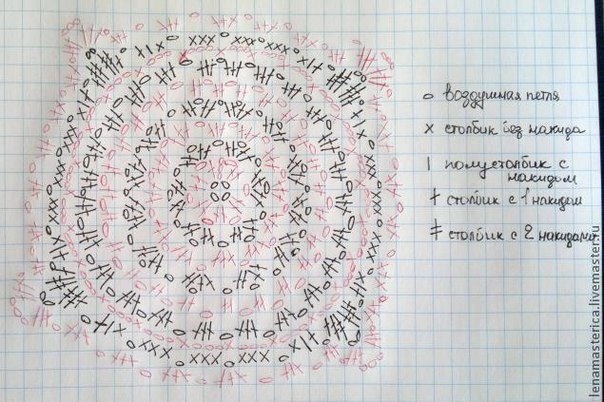 o воздушная петля
x столбик без накида
| полустолбик с
накидом
† столбик с 1 накидом
‡ столбик с 2 накидами
lenamasterica.livemaster.ru